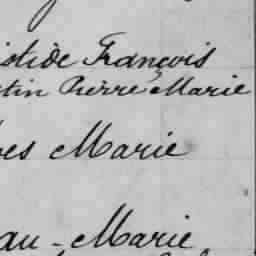 istide François
tin Pierre Marie
es Marie
au-Marie